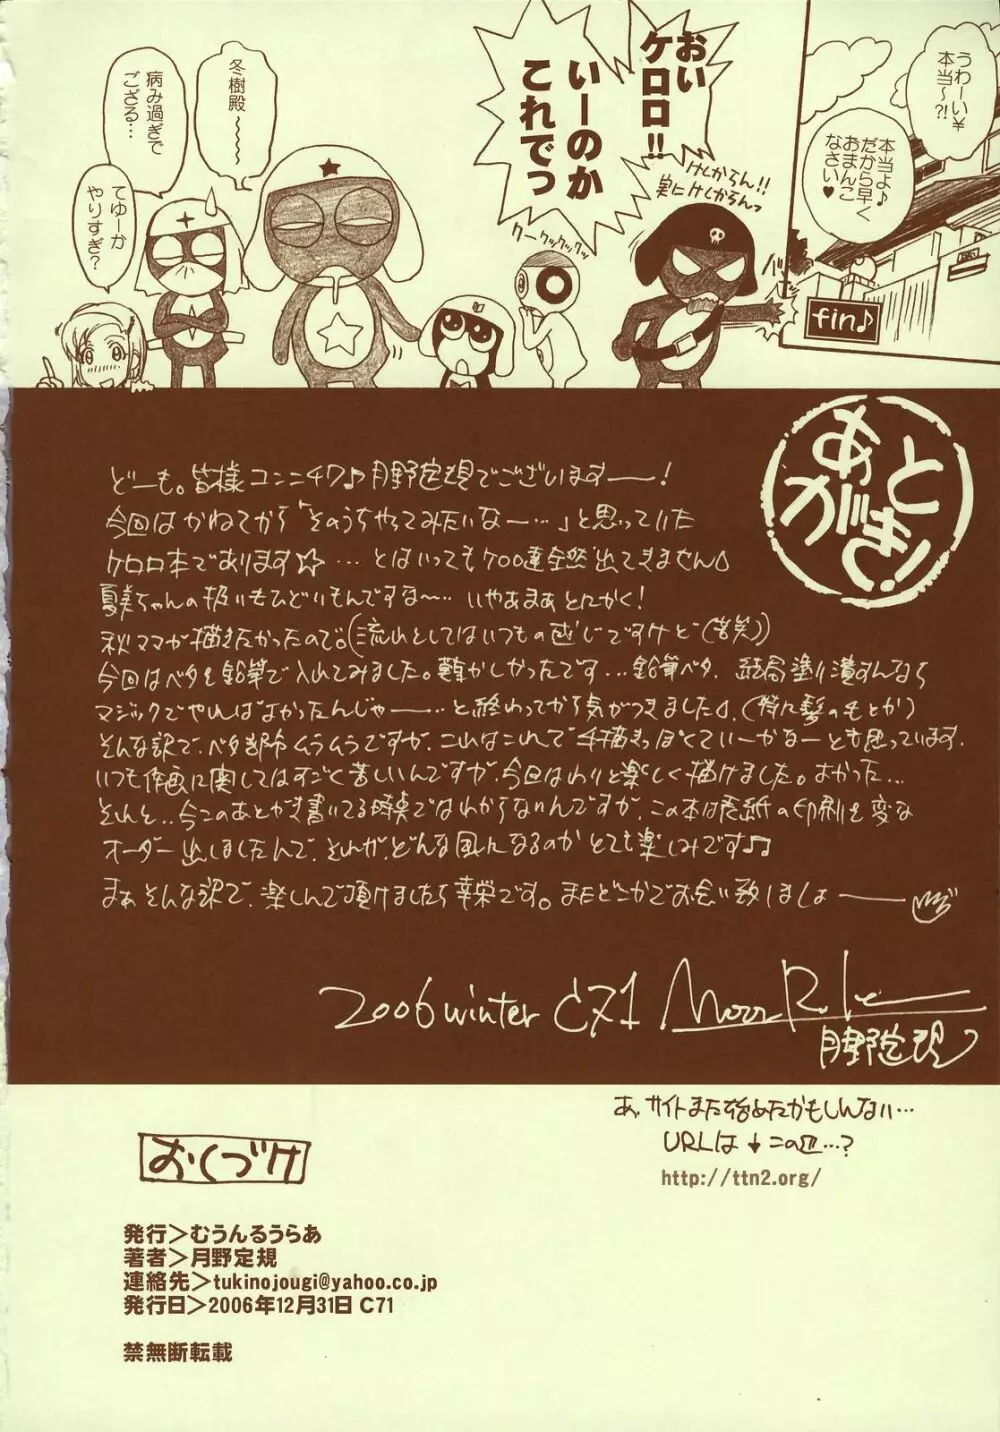 おい
ケロロ!!
いーのか
これでっ
けしからん!!
実にけしからんっ
クークックックッ
冬樹殿〜〜
病み過ぎで
ござる…
てゆーか
やりすぎ?
fin♪
あとがき!
どーも。皆様コンニチワ♪月野定規でございますーー!
今回はかねてから「そのうちやってみたいなー…」と思っていた
ケロロ本であります☆…とはいってもケロロ達全然出てきません
夏美ちゃんの扱いもひどいもんですな〜…いやあまぁとにかく!
秋ママが描きたかったので。(流れとしてはいつもの感じですけど(苦笑))
今回はベタを鉛筆で入れてみました。難かしかったです…鉛筆ベタ。結局塗り潰すんなら
マジックでやればよかったんじゃーー…と終わってから気がつきました。(特に髪のモとか)
そんな訳で、ベタ部分ムラムラですが、これはこれで手描きっぽくていーかなーとも思っています。
いつも作画に関してはすごく苦しいんですが、今回はわりと楽しく描けました。よかった…
それと..今このあとがき書いてる時点ではわからないんですが、この本は表紙の印刷を変な
オーダー出しましたんで、それが、どんな風になるのかとても楽しみです♪♪
まぁそんな訳で、楽しんで頂けましたら幸栄です。またどこかでお会い致しましょーー
2006 winter C71
月野定規
あ、サイトまた始めたかもしんない…
URLは↓この辺…?
http://ttn2.org/
おくづけ
発行＞むうんるうらあ
著者＞月野定規
連絡先＞tukinojougi@yahoo.co.jp
発行日＞2006年12月31日 C71
禁無断転載